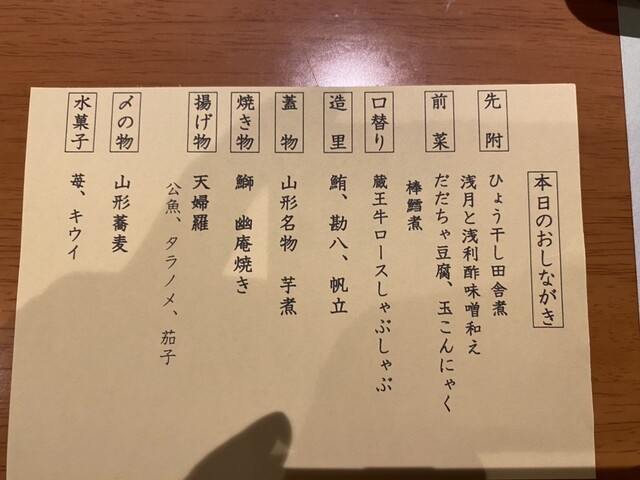 本日のおしながき
先附
ひょう干し田舎煮
浅月と浅利酢味噌和え
前菜
だだちゃ豆腐、玉こんにゃく
棒鱈煮
口替り
蔵王牛ロースしゃぶしゃぶ
造里
鮪、勘八、帆立
蓋物
山形名物 芋煮
焼き物
鰤 幽庵焼き
揚げ物
天婦羅
公魚、タラノメ、茄子
〆の物
山形蕎麦
水菓子
苺、キウイ